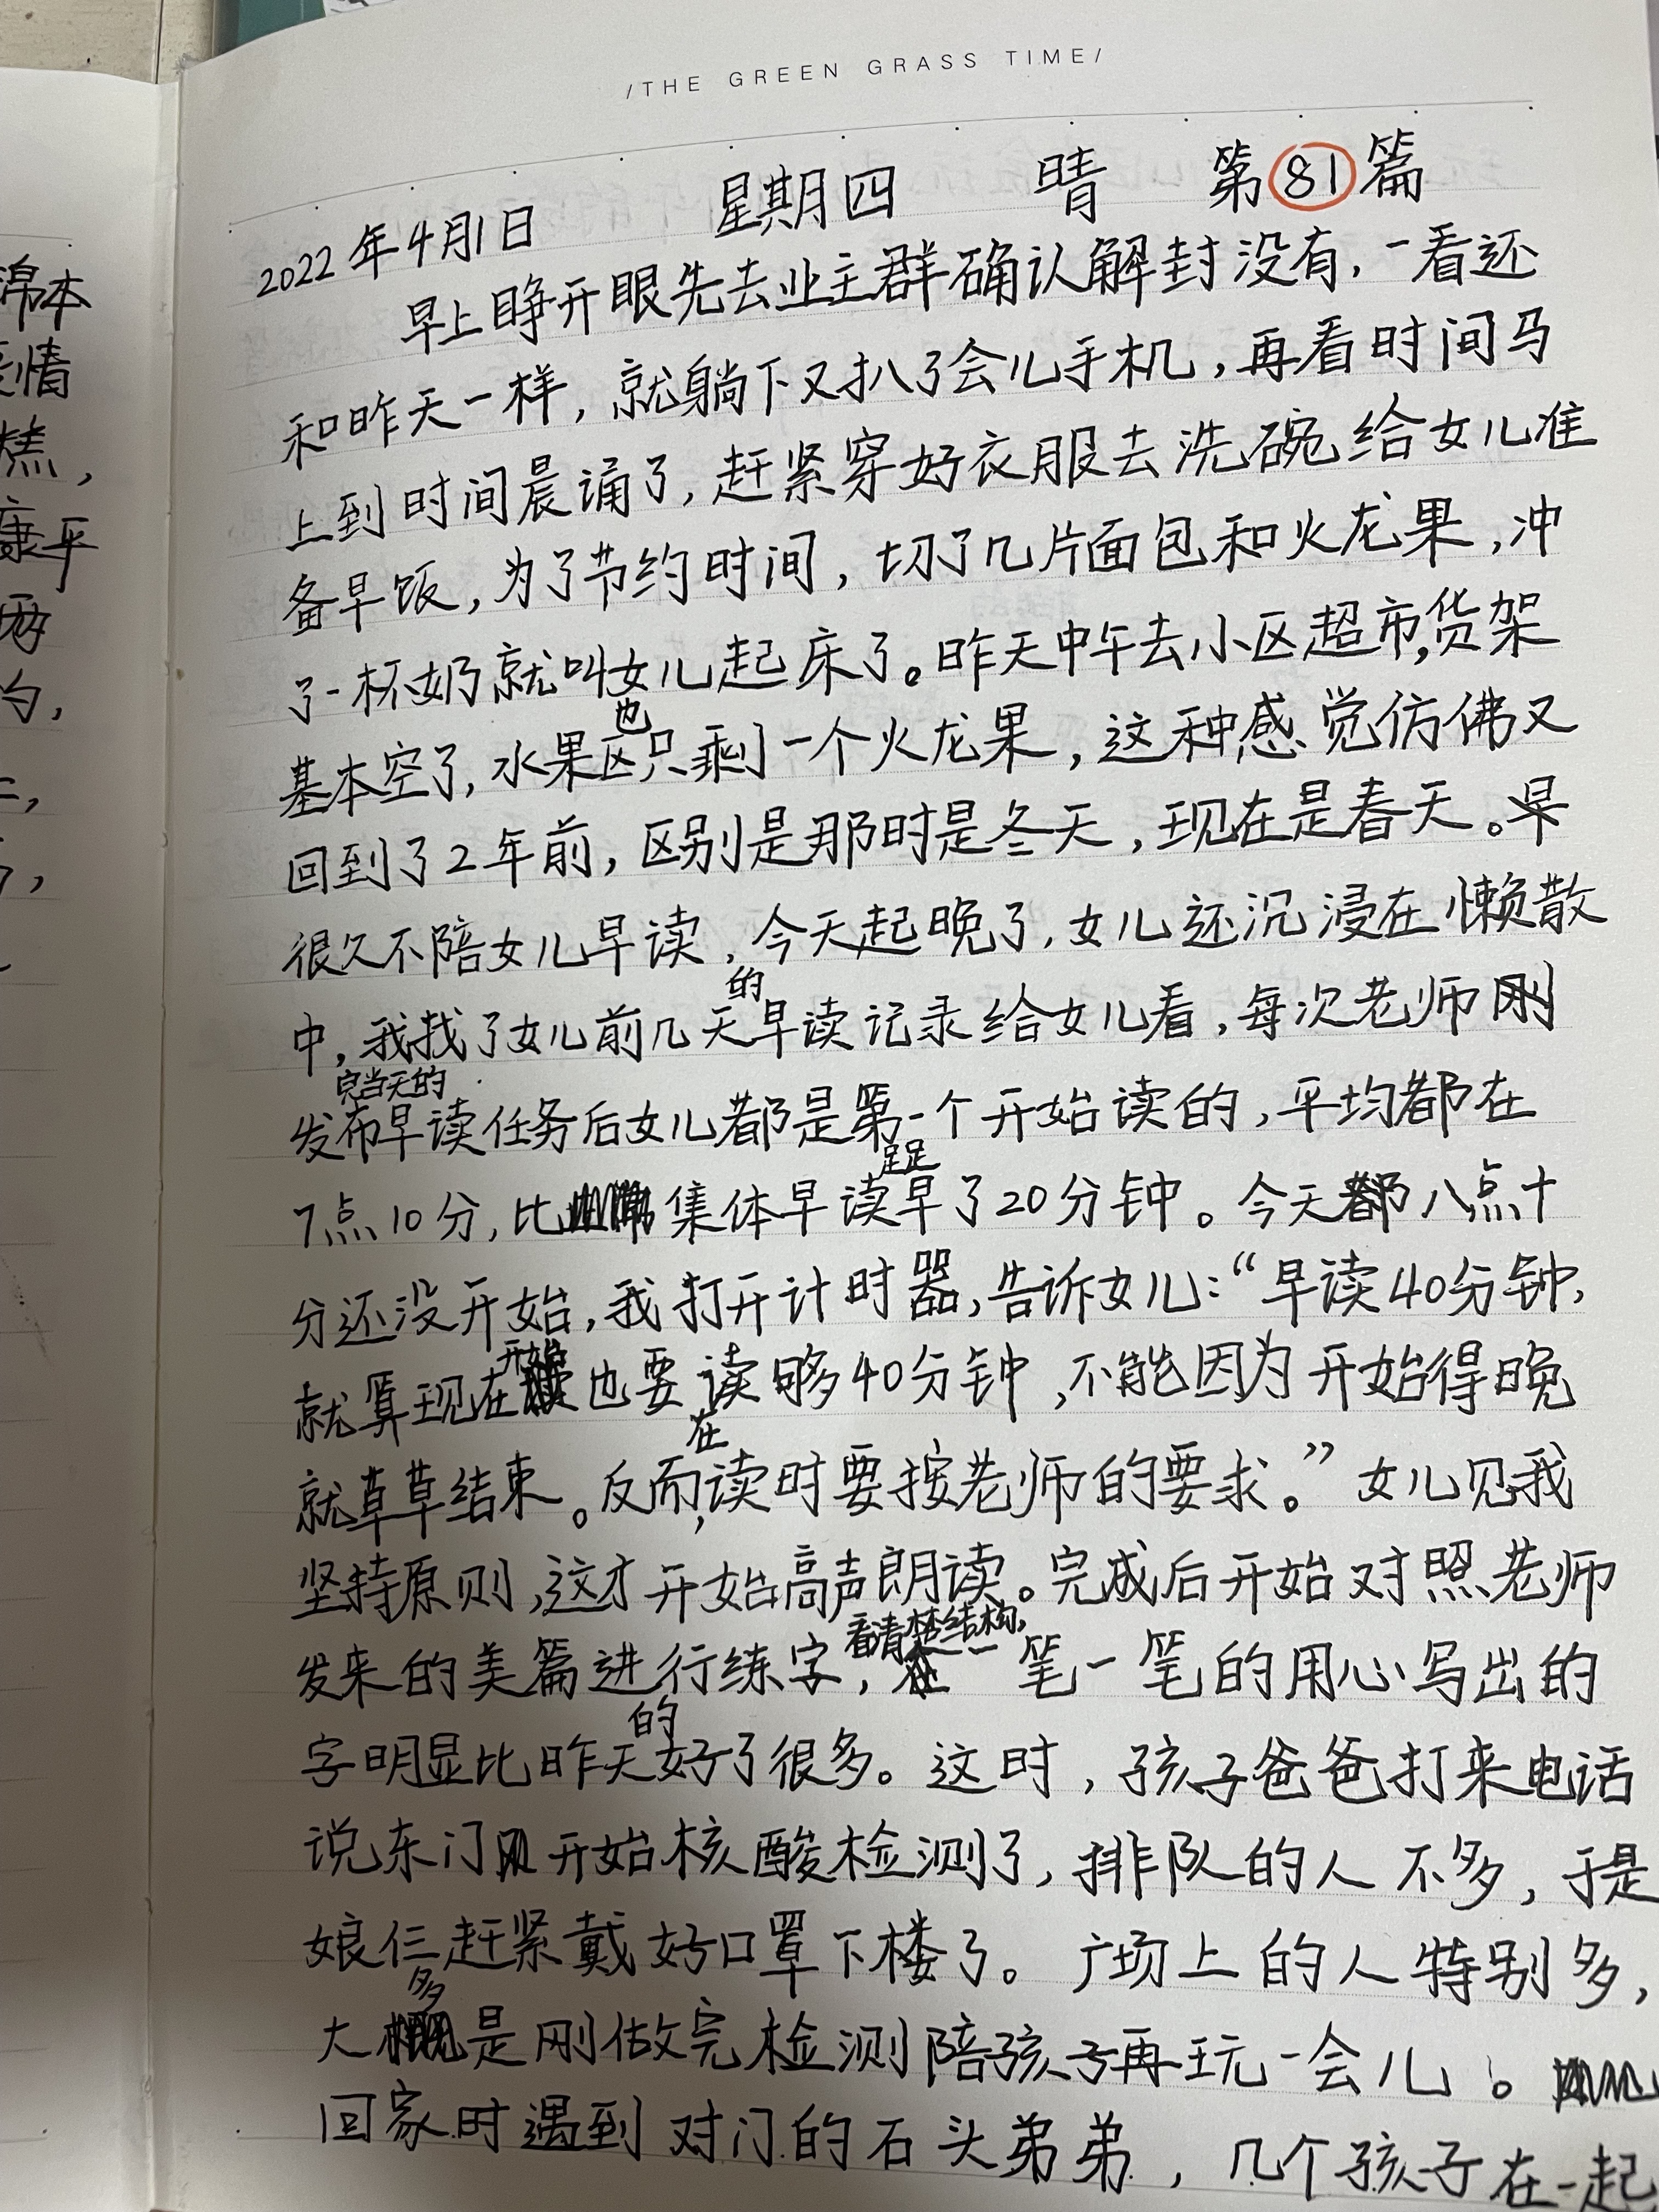 /THE GREEN GRASS TIME/
2022年4月1日 星期四 晴 第81篇
早上睁开眼先去业主群确认解封没有，一看还
和昨天一样，就躺下又扒了会儿手机，再看时间马
上到时间晨诵了，赶紧穿好衣服去洗碗给女儿准
备早饭，为了节约时间，切了几片面包和火龙果，冲
了一杯奶就叫女儿起床了。昨天中午去小区超市，货架
基本空了，水果区也只剩一个火龙果，这种感觉仿佛又
回到了2年前，区别是那时是冬天，现在是春天。早
很久不陪女儿早读，今天起晚了，女儿还沉浸在懒散
中，我找了女儿前几天的早读记录给女儿看，每次老师刚
发布完当天的早读任务后女儿都是第一个开始读的，平均都在
7点10分，比集体早读足足早了20分钟。今天都八点十
分还没开始，我打开计时器，告诉女儿：“早读40分钟，
就算现在开始也要读够40分钟，不能因为开始得晚
就草草结束。反而，在读时要按老师的要求。”女儿见我
坚持原则，这才开始高声朗读。完成后开始对照老师
发来的美篇进行练字，看清楚结构，一笔一笔的用心写出的
字明显比昨天的好了很多。这时，孩子爸爸打来电话
说东门开始核酸检测了，排队的人不多，于是
娘仨赶紧戴好口罩下楼了。广场上的人特别多，
大多是刚做完检测陪孩子再玩一会儿。
回家时遇到对门的石头弟弟，几个孩子在一起
绵本
情
糕，
康平